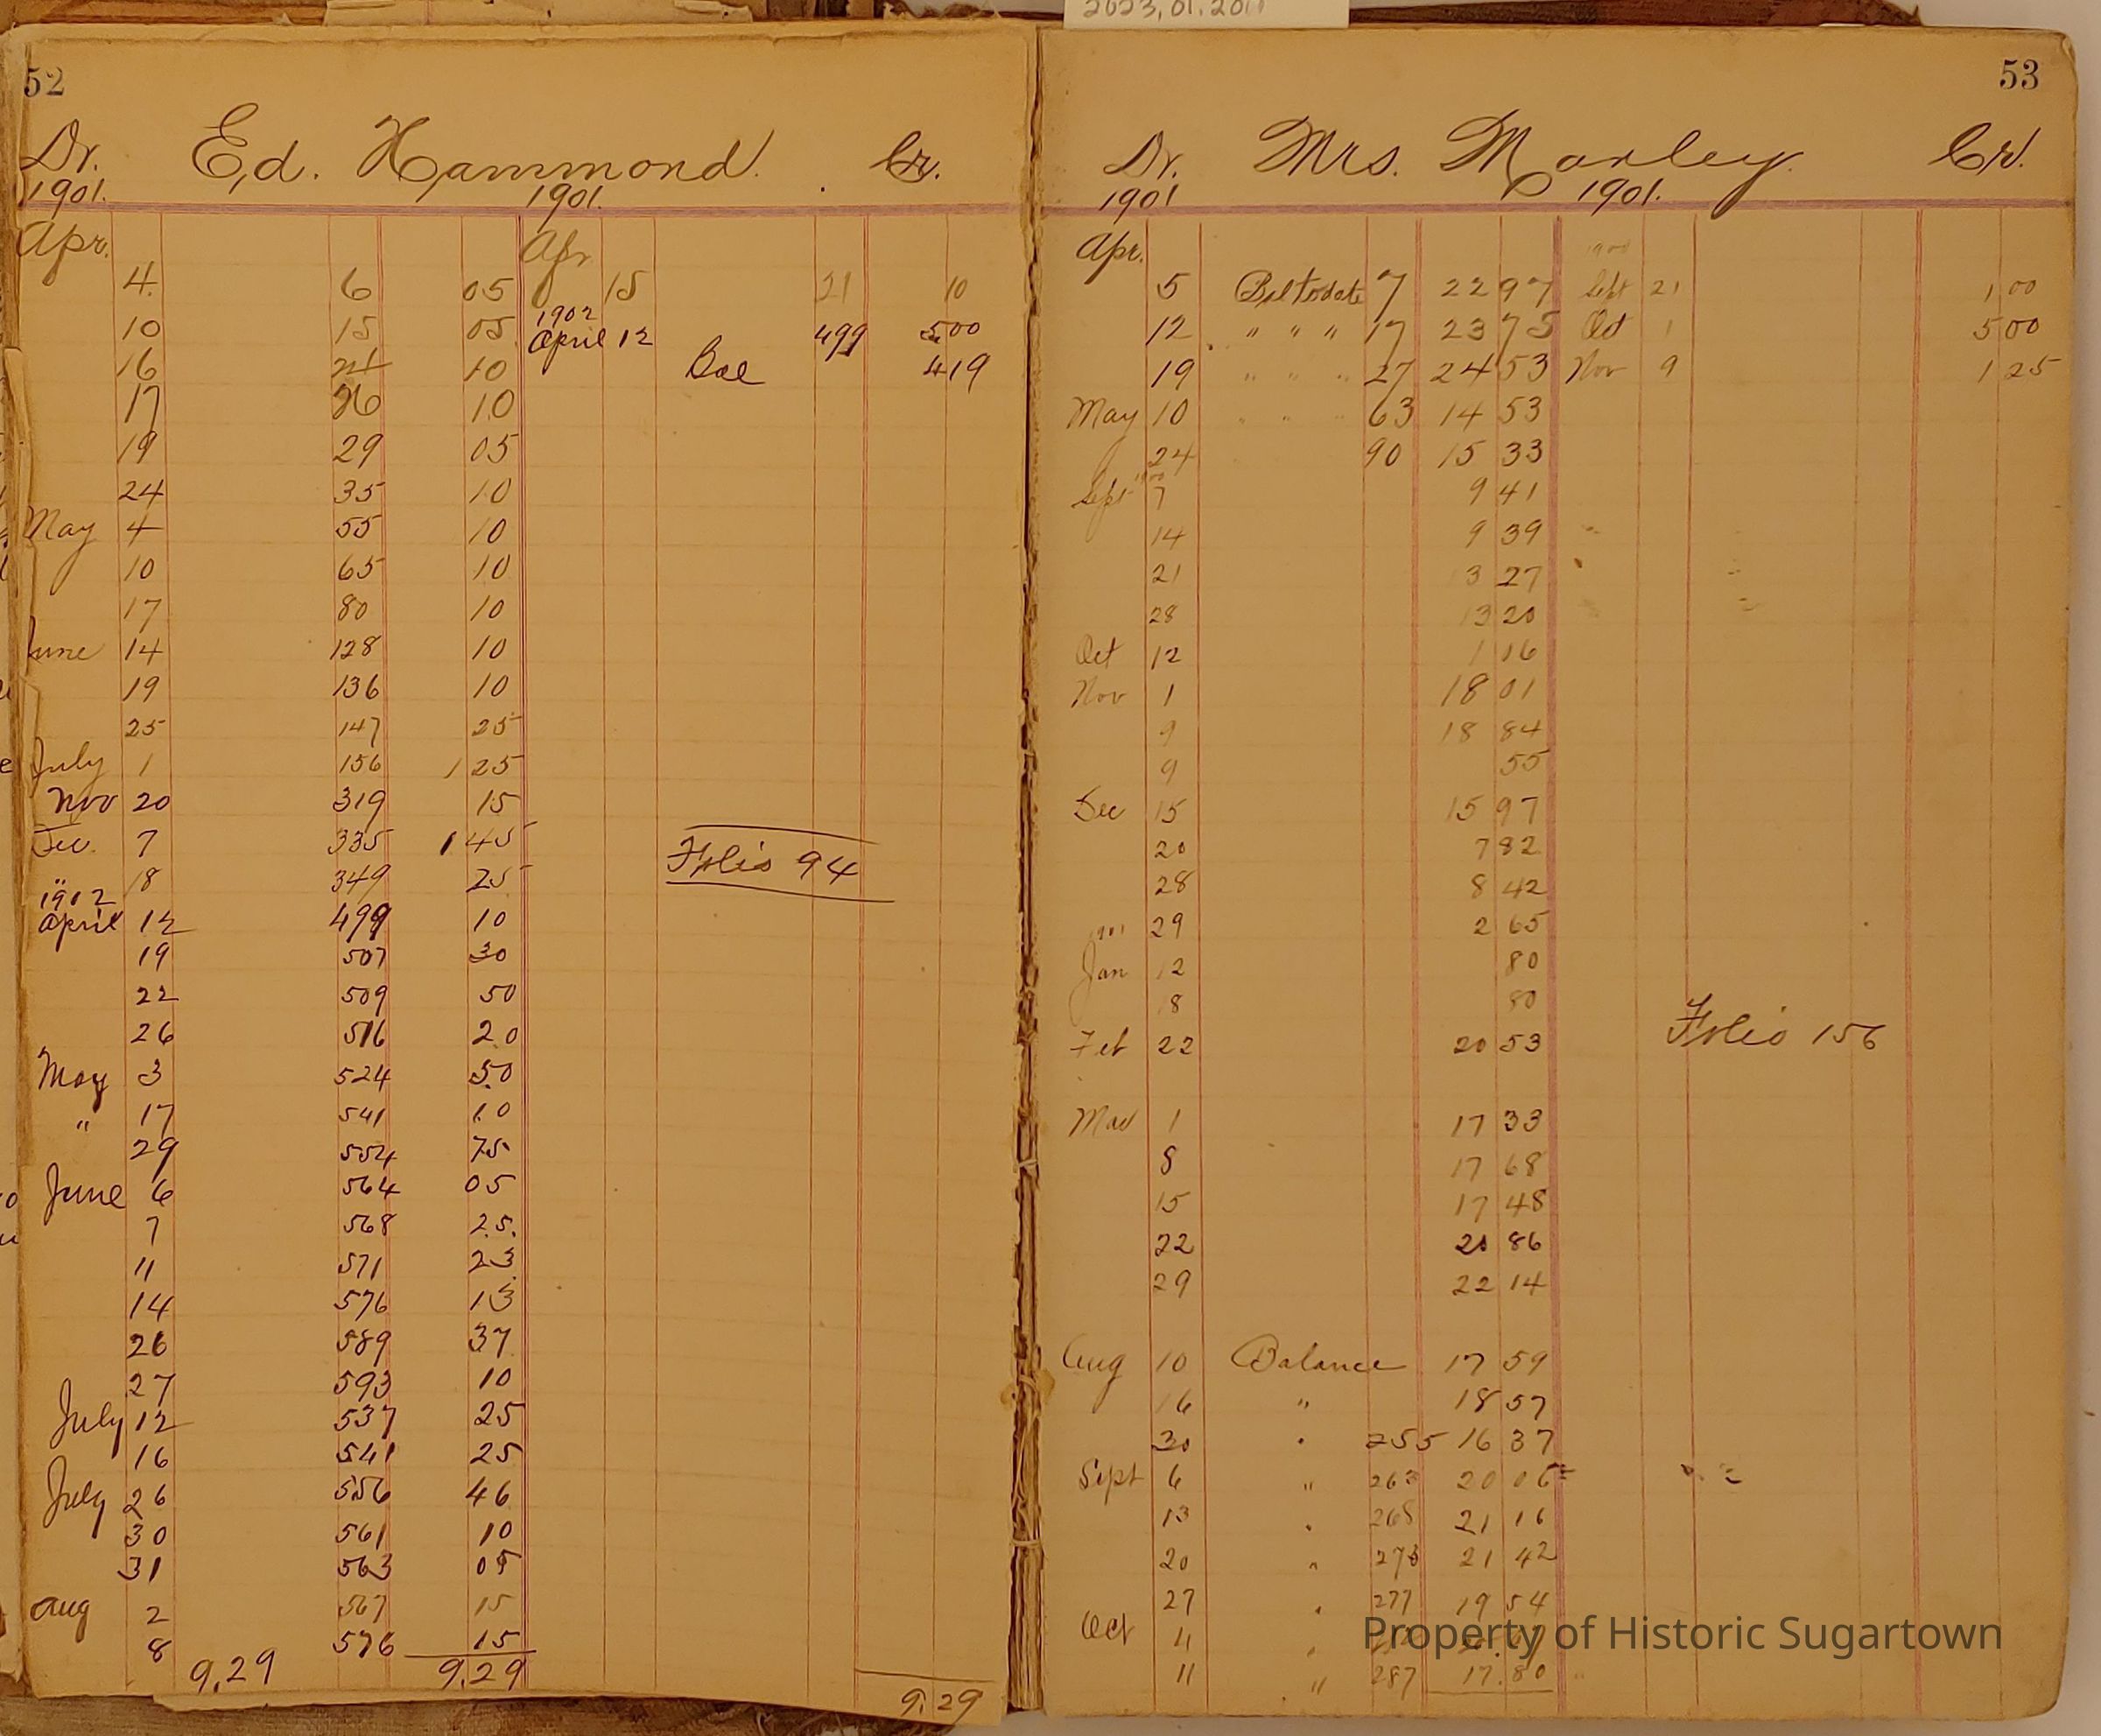 2023.01.2011
52
Dr. Ed. Hammond. Cr.
1901. 1901.
Apr. Apr
4. 6 05 15 21 10
1902
10 15 05 April 12 499 5 00
16 24 10 Bal 4 19
17 26 10
19 29 05
24 35 10
May 4 55 10
10 65 10
17 80 10
June 14 128 10
19 136 10
25 147 25
July 1 156 1 25
Nov 20 319 15
Dec. 7 335 1 45
Folio 94
" 18 349 25
1902
April 12 499 10
19 507 30
22 509 50
26 516 20
May 3 524 50
" 17 541 10
29 554 75
June 6 564 05
7 568 25
11 571 23
14 576 13
26 589 37
27 593 10
July 12 537 25
16 541 25
July 26 556 46
30 561 10
31 563 05
Aug 2 567 15
8 576 15
9.29 9.29
9.29
53
Dr. Mrs. Marley Cr.
1901 1901.
Apr. 1900
5 Bal to date 7 22 97 Sept 21 1 00
12 " " " 17 23 75 Oct 1 5 00
19 " " " 27 24 53 Nov 9 1 25
May 10 " " " 63 14 53
24 90 15 33
1900
Sept 7 9 41
14 9 39
21 3 27
28 13 20
Oct 12 1 16
Nov 1 18 01
9 18 84
9 55
Dec 15 15 97
20 7 82
28 8 42
29 2 65
1901
Jan 12 80
18 80
Folio 156
Feb 22 20 53
Mar 1 17 33
8 17 68
15 17 48
22 20 86
29 22 14
Aug 10 Balance 17 59
16 " 18 57
30 " 255 16 37
Sept 6 " 263 20 06
13 " 268 21 16
20 " 273 21 42
27 " 277 19 54
Oct 11 "
11 " 287 17.80
Property of Historic Sugartown